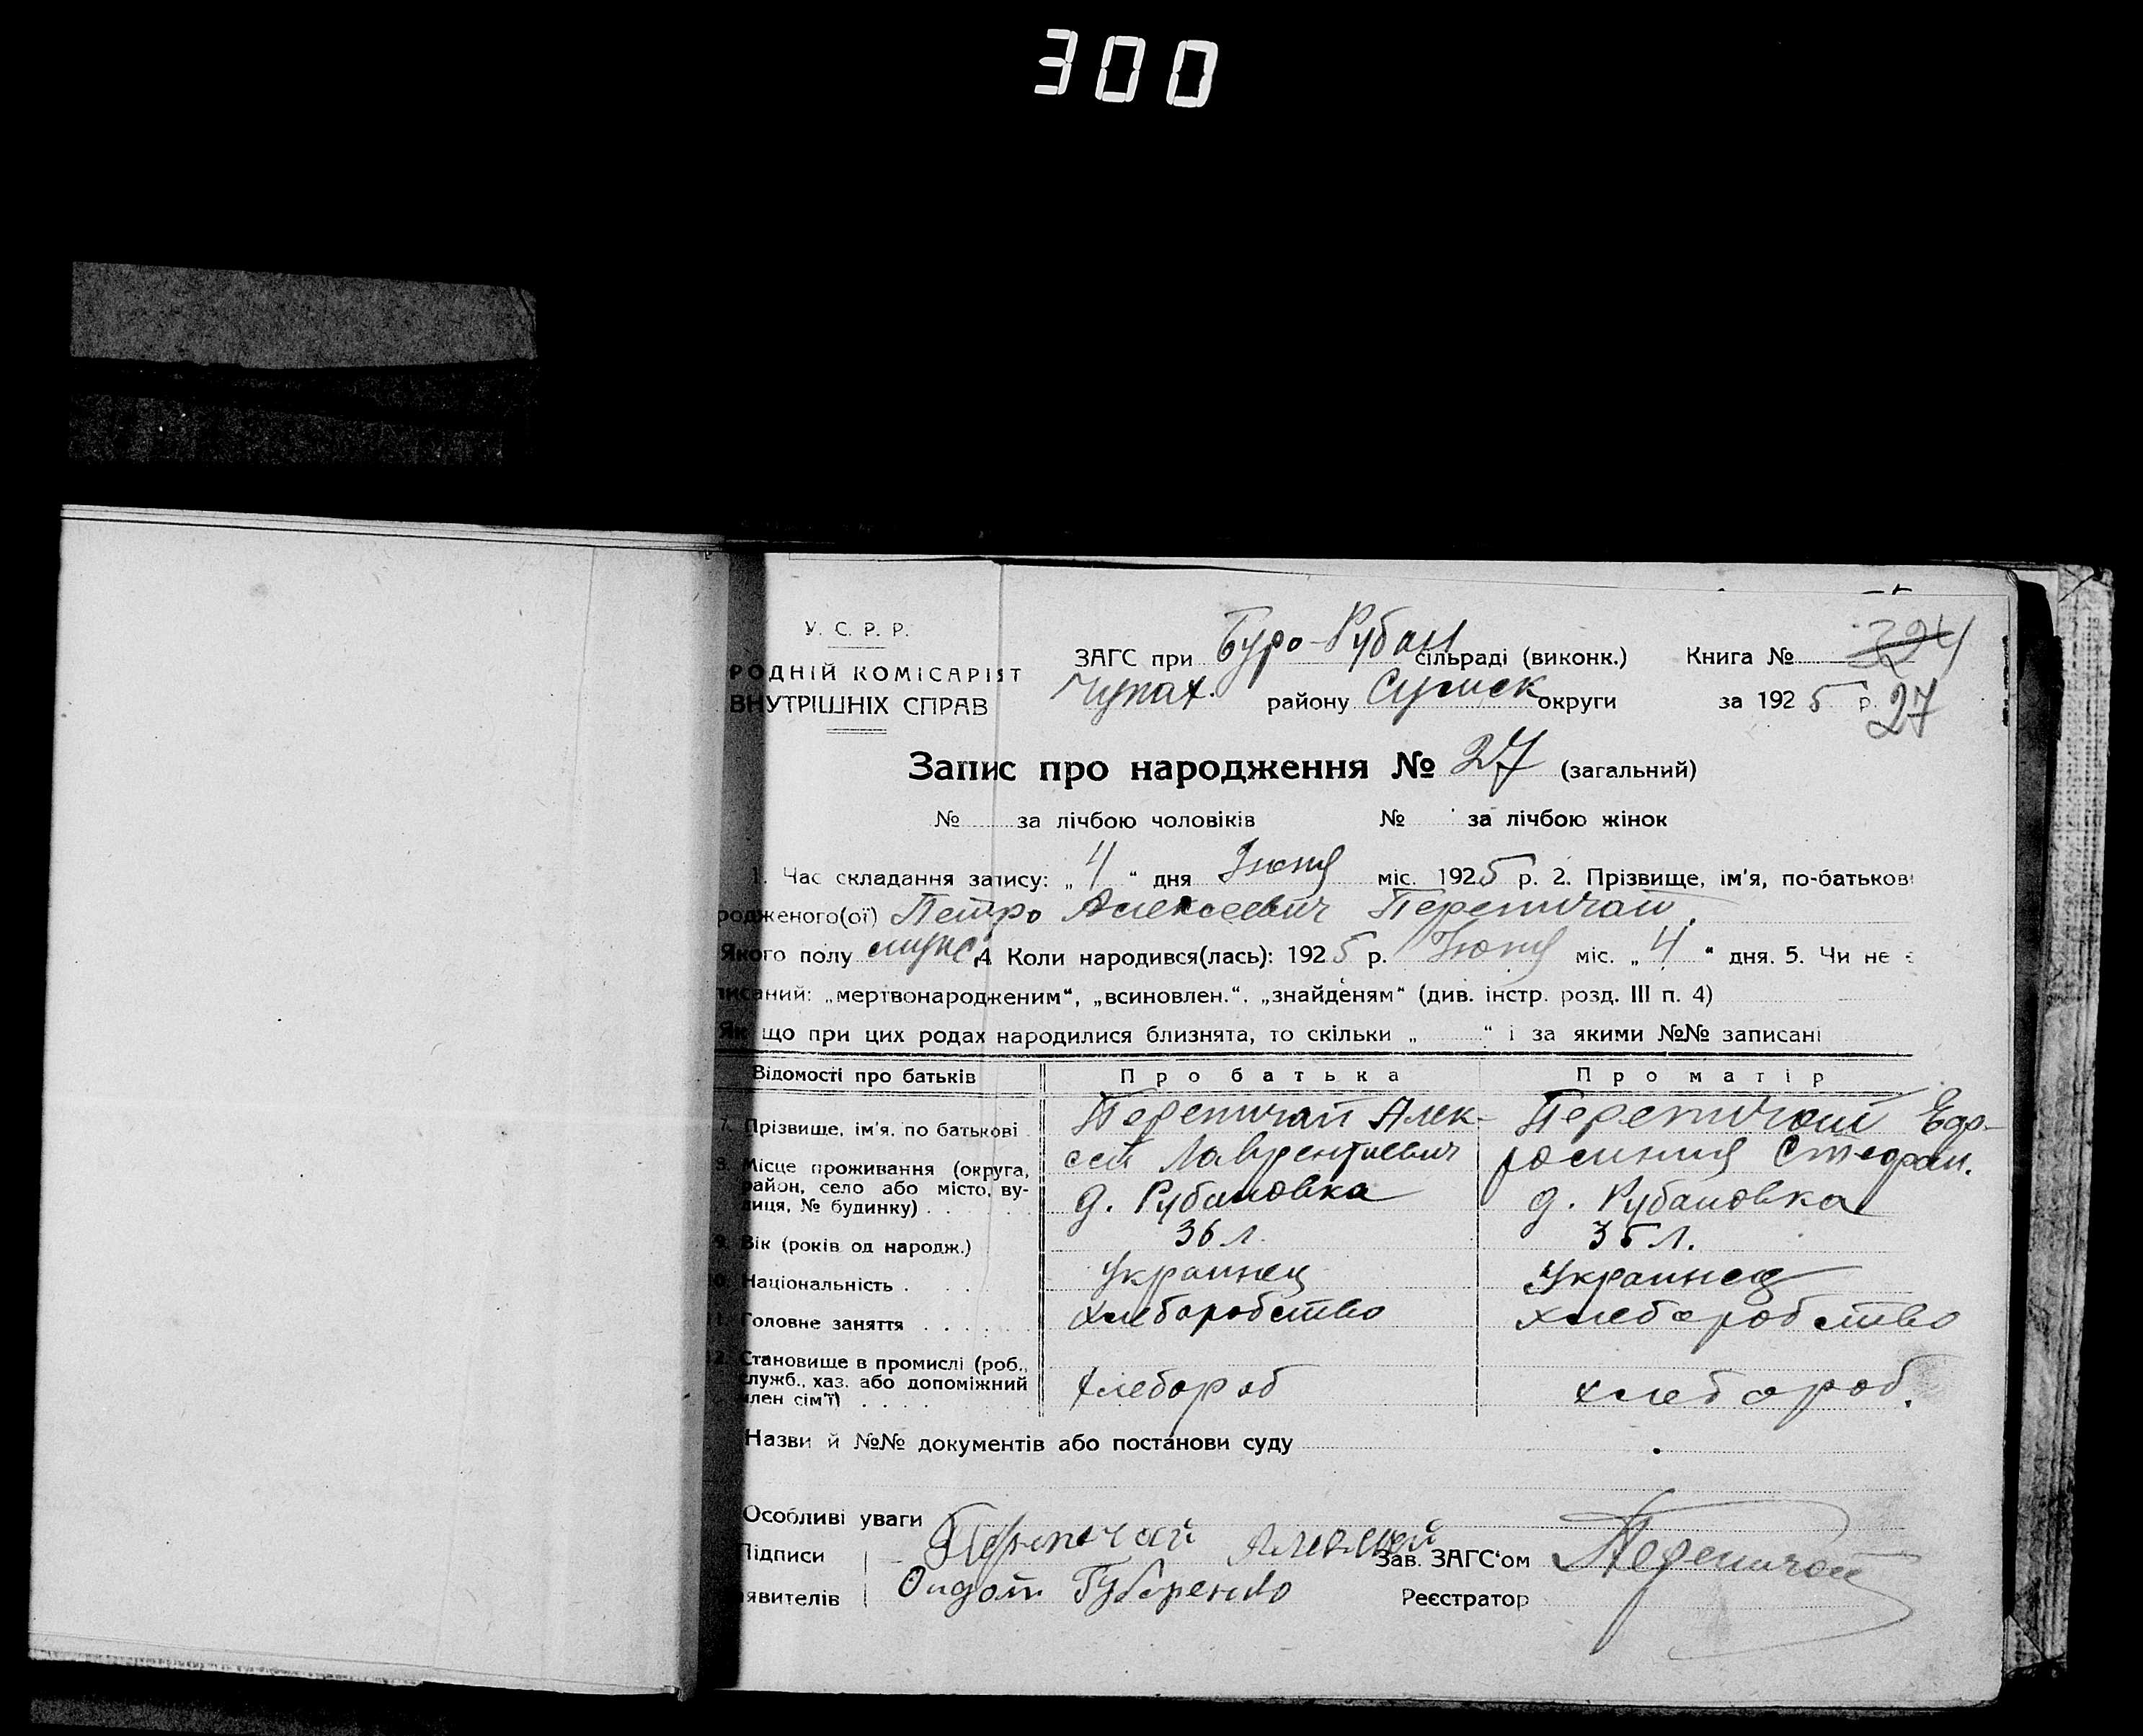 300
У. С. Р. Р.
РОДНІЙ КОМІСАРІЯТ
ВНУТРІШНІХ СПРАВ
ЗАГС при Буро-Рубан сільраді (виконк.) Книга № 324
Чупах. району Сумск округи за 1925 р. 27
Запис про народження № 27 (загальний)
№ за лічбою чоловіків № за лічбою жінок
1. Час складання запису: „4“ дня Июня міс. 1925 р. 2. Прізвище, ім'я, по-батькові
родженого(ої) Петро Алексеевич Перепичай.
Якого полу мужс. 4 Коли народився(лась): 1925 р. Июня міс. „4“ дня. 5. Чи не є
писаний: „мертвонародженим“, „всиновлен.“, „знайденям“ (див. інстр. розд. III п. 4)
Як що при цих родах народилися близнята, то скільки „ “ і за якими №№ записані
Відомості про батьків Про батька Про матір
7. Прізвище, ім'я, по батькові Перепичай Алек- Перепичай Ефр-
сей Лаврентиевич росиния Стефан.
8. Місце проживання (округа,
район, село або місто, ву-
лиця, № будинку) д. Рубановка д. Рубановка
9. Вік (років од народж.) 36 л. 35 л.
10. Національність Украинец Украинец
11. Головне заняття хлеборобство хлеборобство
12. Становище в промислі (роб.,
служб., хаз. або допоміжний
член сім'ї) хлебороб хлебороб.
Назви й №№ документів або постанови суду
Особливі уваги
Підписи Перепечай Алексей Зав. ЗАГС'ом Перепичай
явителів Губаренко Реєстратор